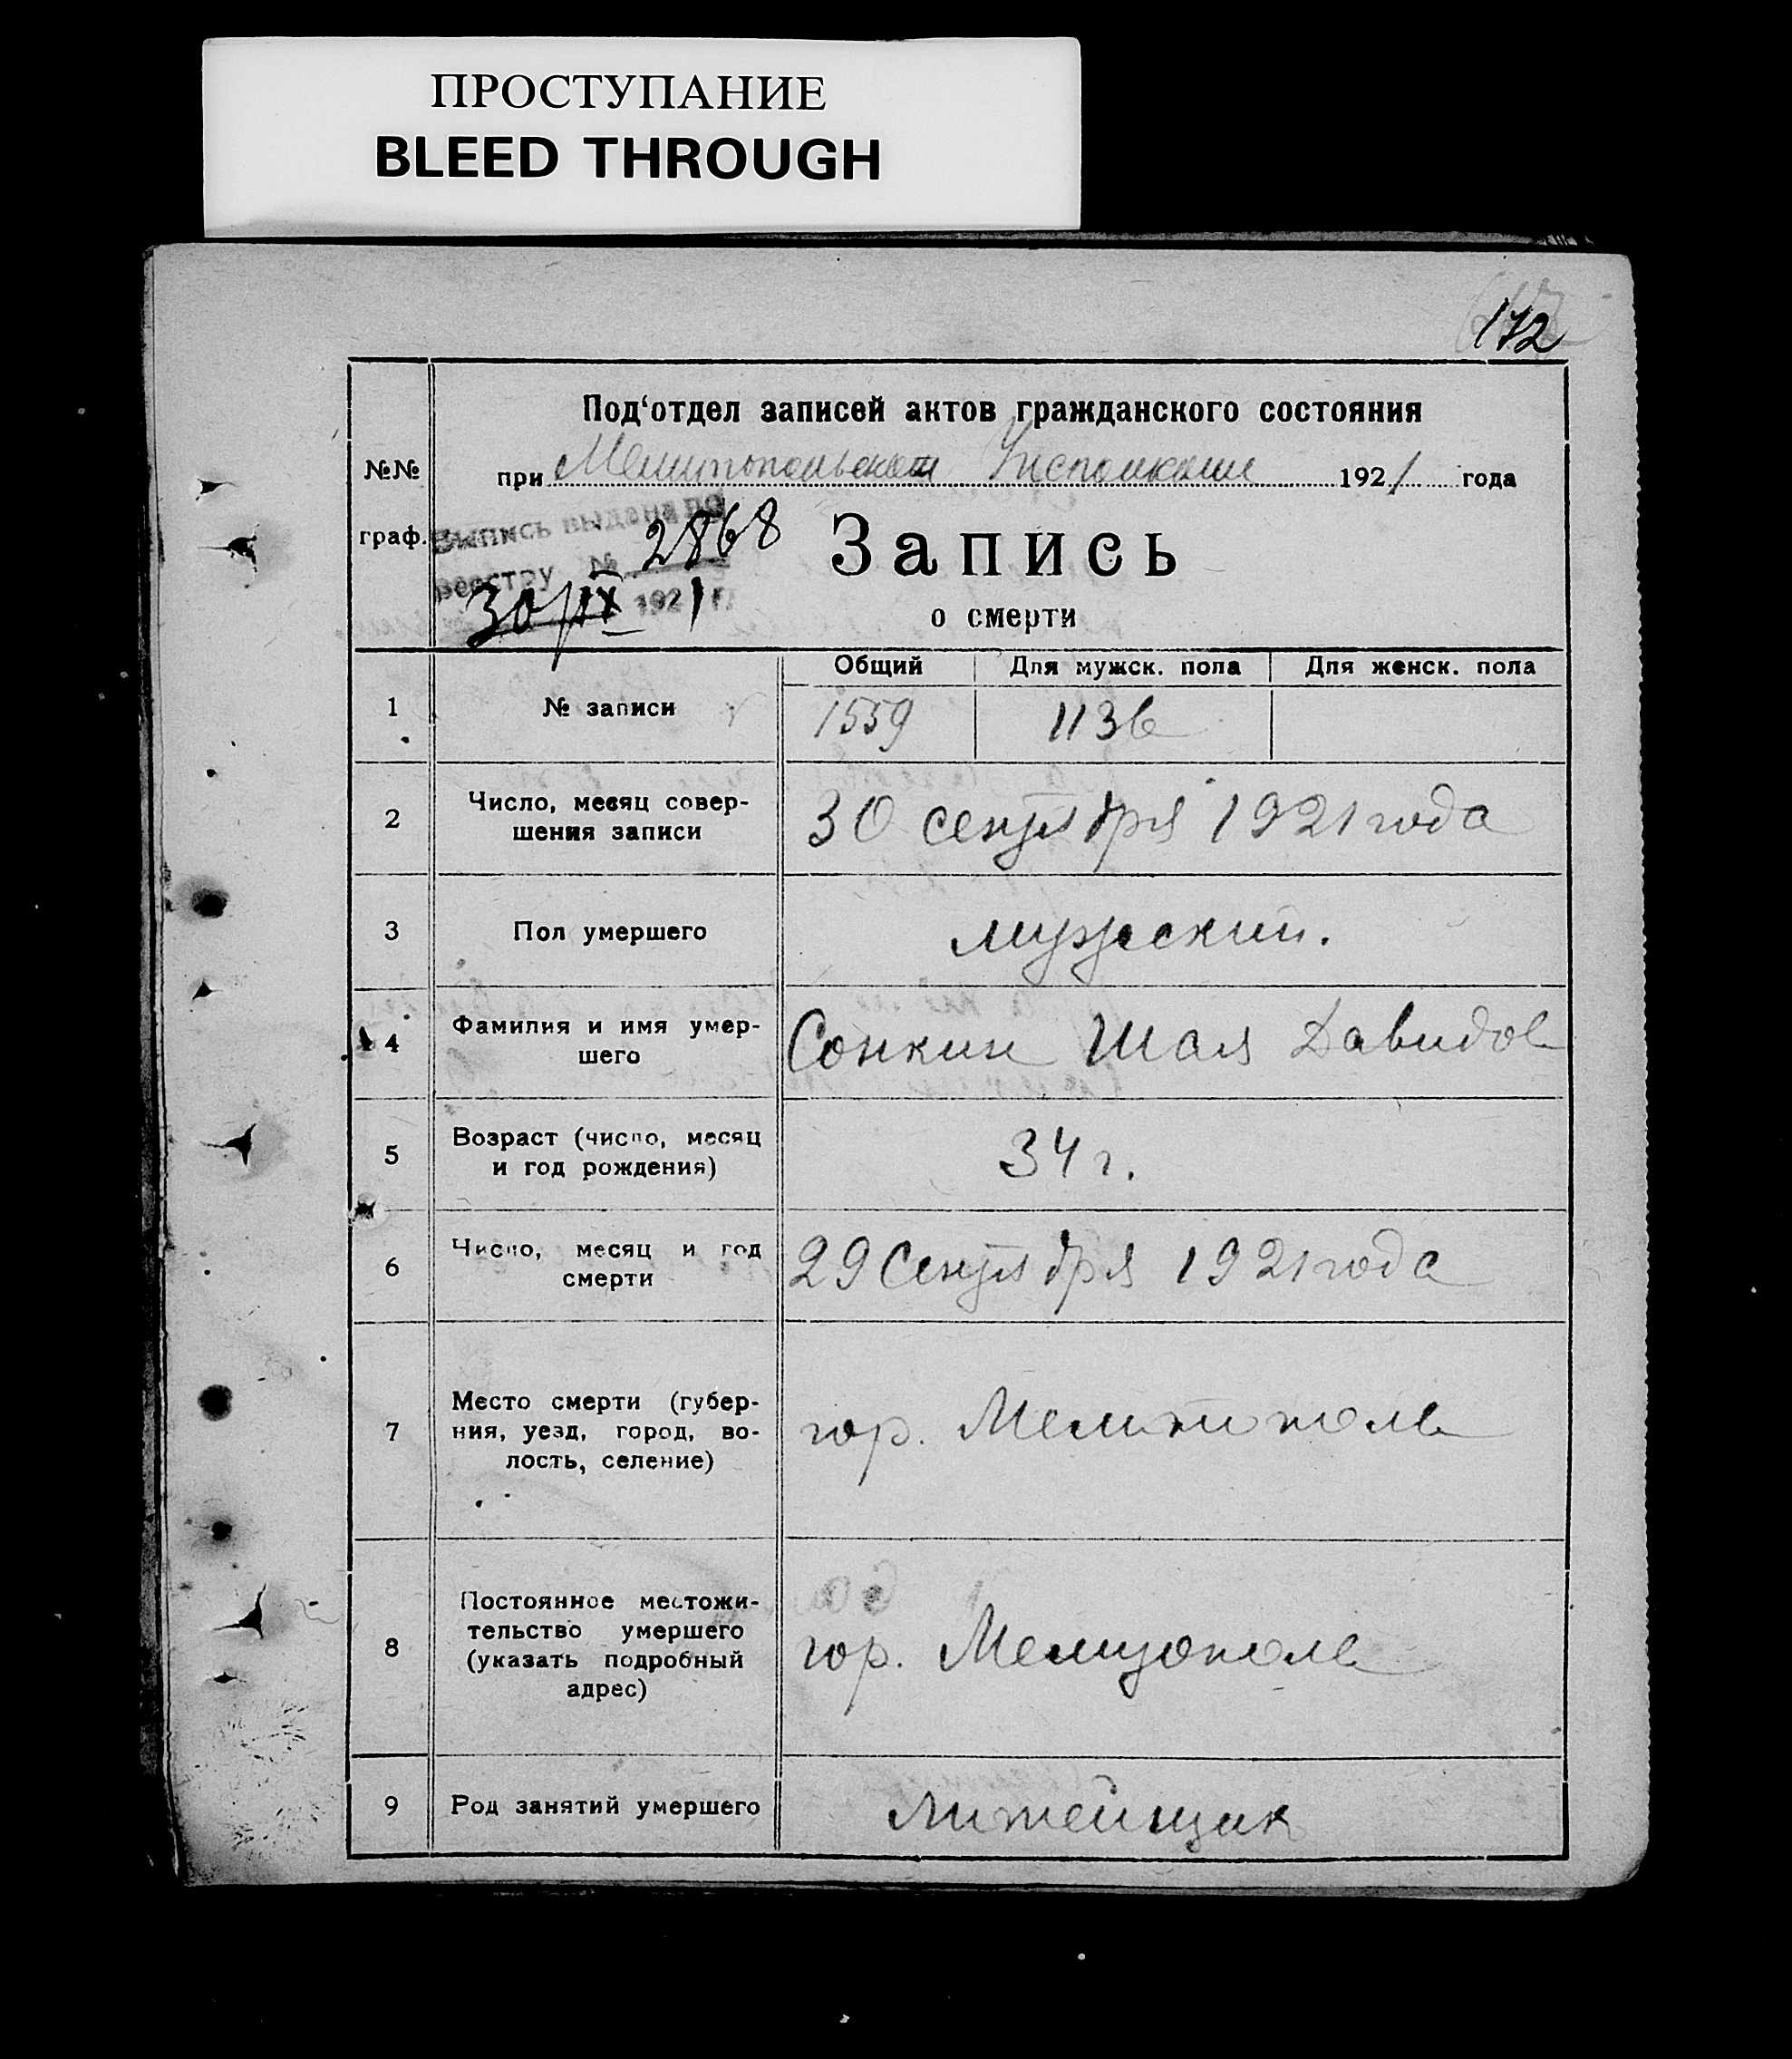 ПРОСТУПАНИЕ
BLEED THROUGH
172
Под‘отдел записей актов гражданского состояния
№№ граф.
при Мелитопольском Исполкоме 1921 года
Выпись выдана по
реестру № 2868
30/IX 1921 г.
Запись
о смерти
Общий Для мужск. пола Для женск. пола
1 № записи 1559 1136
2 Число, месяц совер-
шения записи
30 сентября 1921 года
3 Пол умершего мужский.
4 Фамилия и имя умер-
шего
Сонкин Шая Давидов
5 Возраст (число, месяц
и год рождения)
34 г.
6 Число, месяц и год
смерти
29 Сентября 1921 года
7 Место смерти (губер-
ния, уезд, город, во-
лость, селение)
гор. Мелитополь
8 Постоянное местожи-
тельство умершего
(указать подробный
адрес)
гор. Мелитополь
9 Род занятий умершего Литейщик